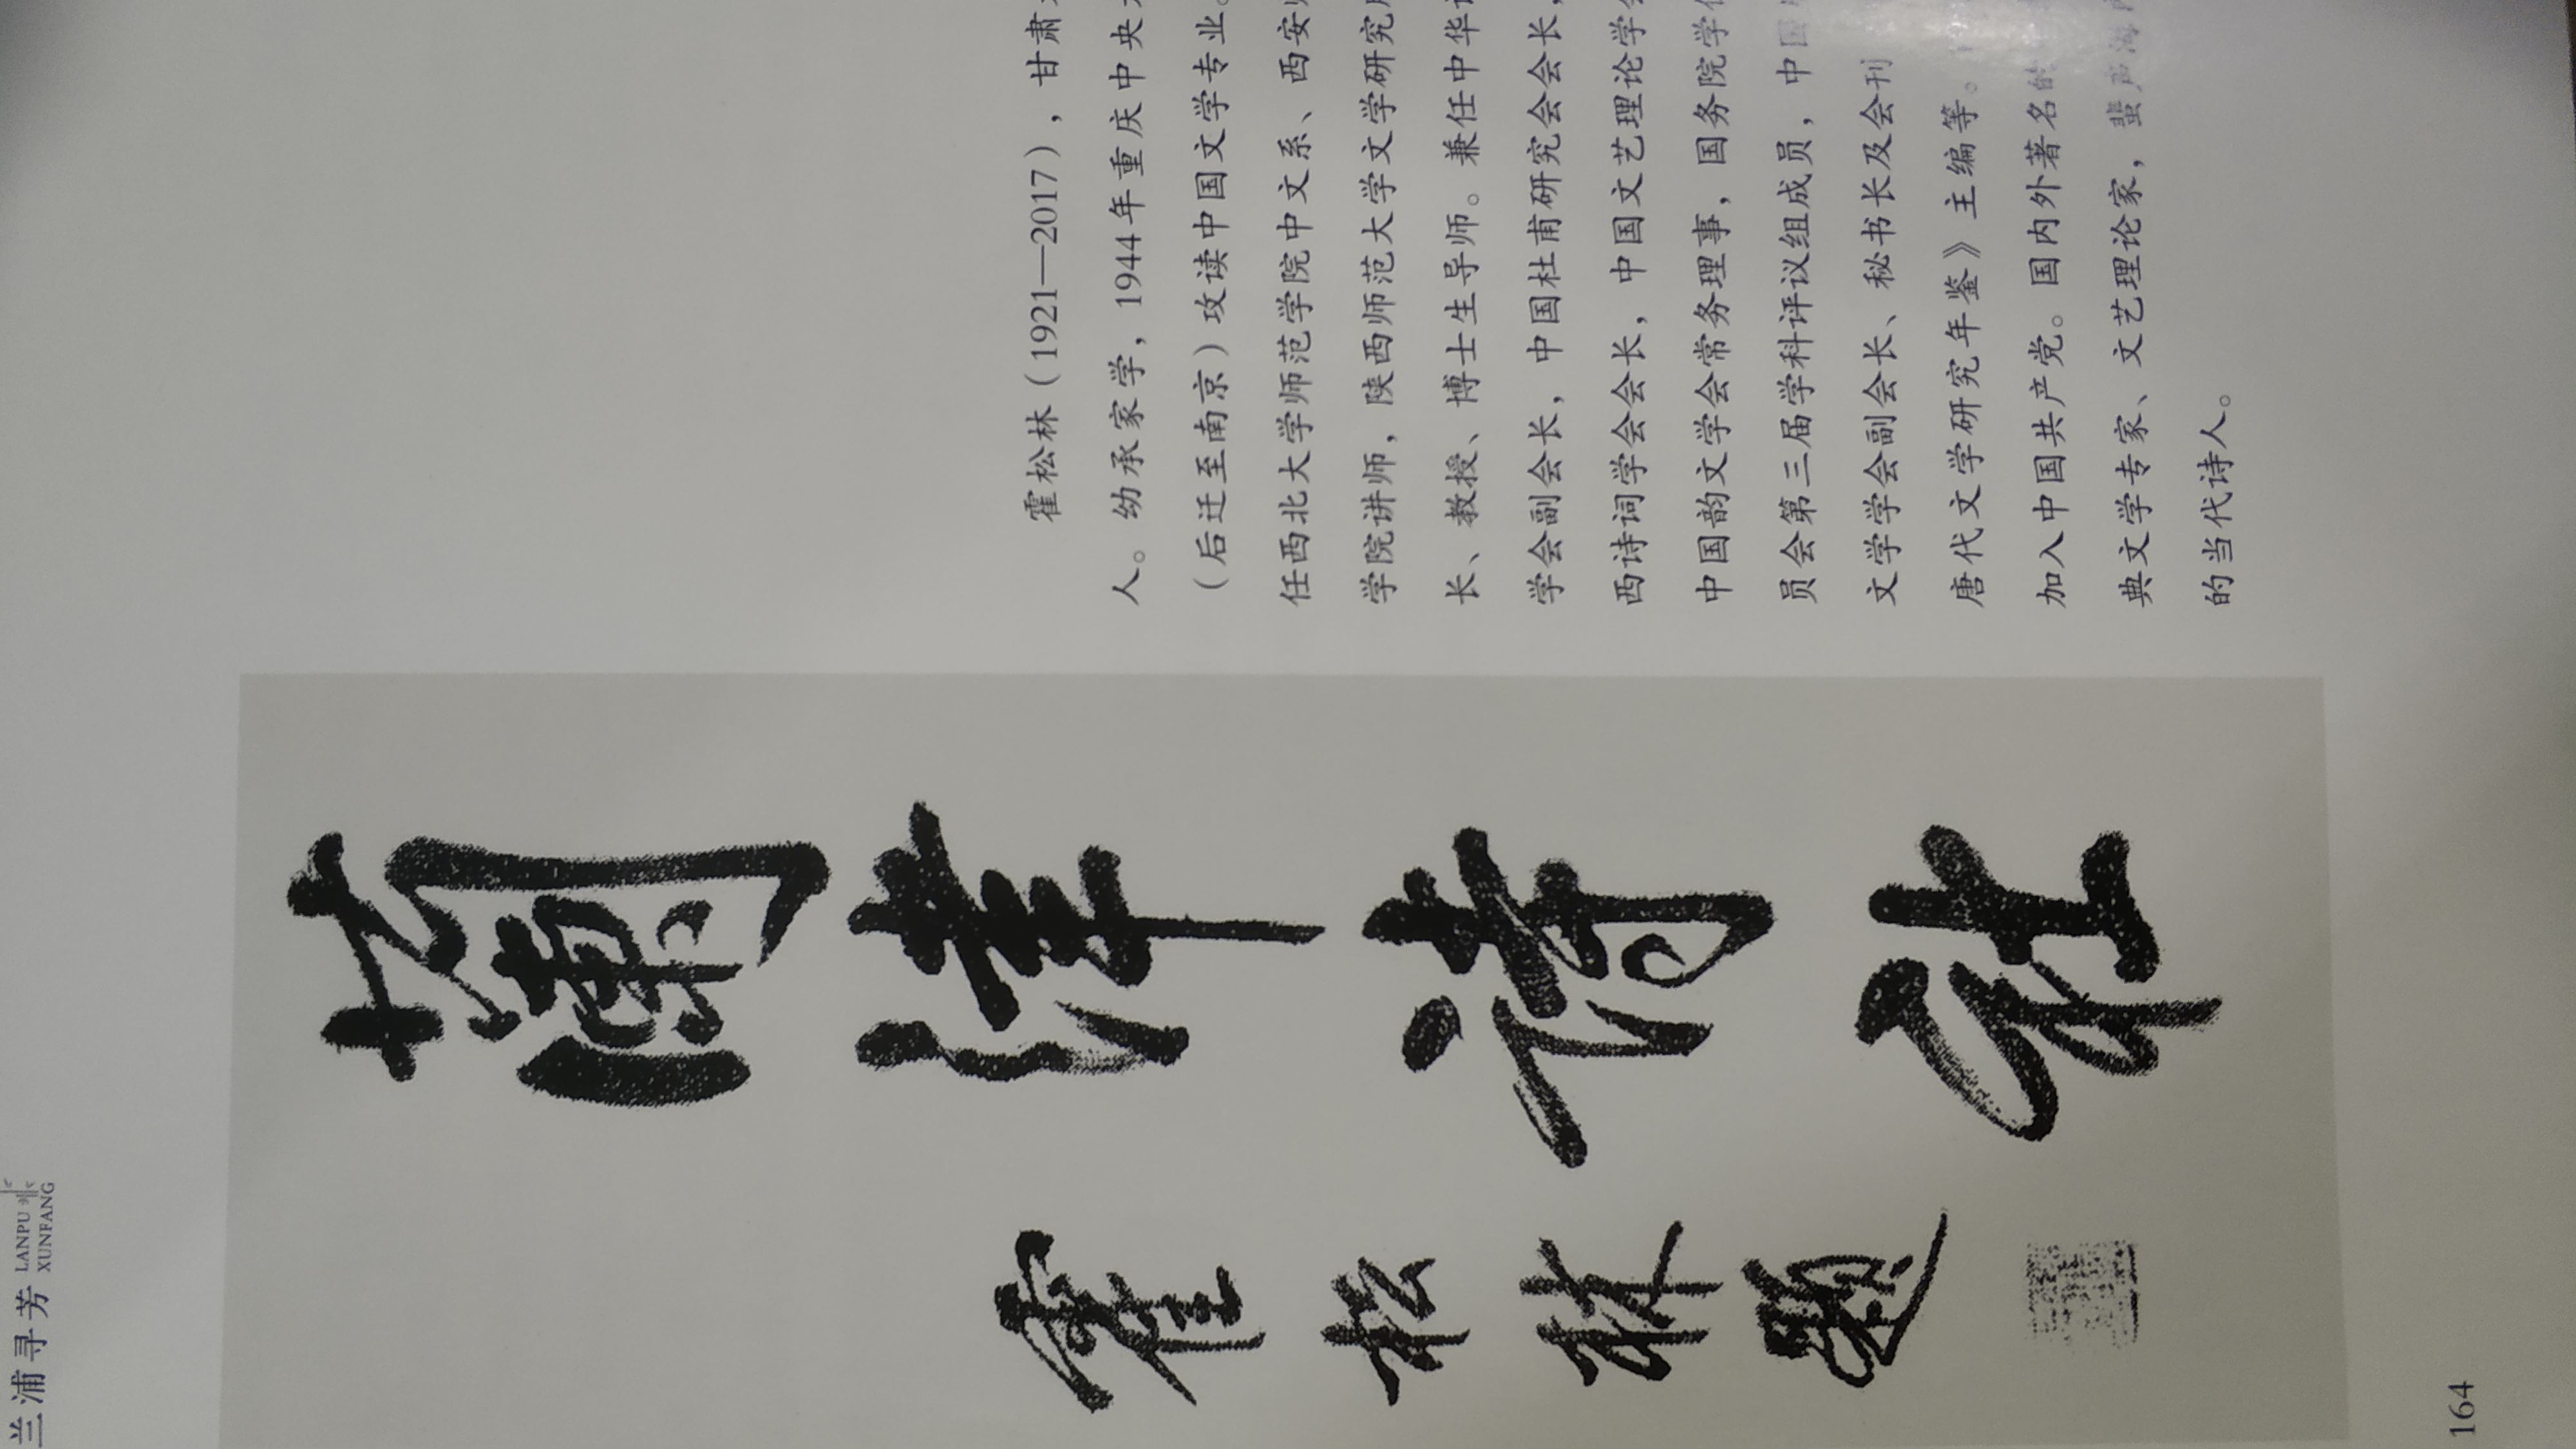 兰浦寻芳
LANPU
XUNFANG
霍松林（1921—2017），甘肃
人。幼承家学，1944年重庆中央
（后迁至南京）攻读中国文学专业。
任西北大学师范学院中文系、西安
学院讲师，陕西师范大学文学研究
长、教授、博士生导师。兼任中华
学会副会长，中国杜甫研究会会长，
西诗词学会会长，中国文艺理论学会
中国韵文学会常务理事，国务院学
员会第三届学科评议组成员，中国
文学学会副会长、秘书长及会刊
唐代文学研究年鉴》主编等。
加入中国共产党。国内外著名的
典文学专家、文艺理论家，蜚声海
的当代诗人。
蘭津詩社
霍松林題
164